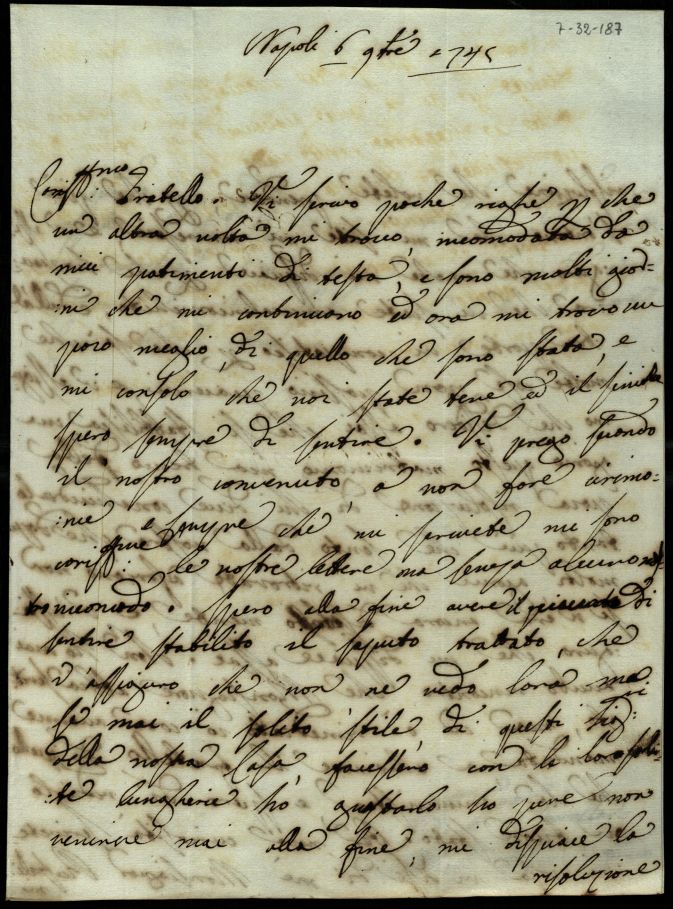 7-32-187
Napoli 6 9bre 1745
Cariss.mo Fratello. Vi scrivo poche righe p che
un altra volta mi trovo incomodata da
miei patimenti di testa, e sono molti gior=
:ni che mi continuano ed ora mi trovo un
poco meglio di quello che sono stata, e
mi consolo che voi state bene ed il simile
spero sempre di sentire. Vi prego secondo
il nostro convenuto, a non fare cirimo:
:nie e sempre che mi scrivete mi sono
cariss:me le vostre lettere ma senza alcuno vos=
tro incomodo. Spero alla fine avere il di
sentire stabilito il saputo trattato, che
v'assicuro che non ne vedo l'ora mai
se mai il solito stile di questi
della nostra Casa facessero con le loro soli=
:te lungherie hò guastarlo ho pure non
venirne mai alla fine, mi dispiace la
risoluzione